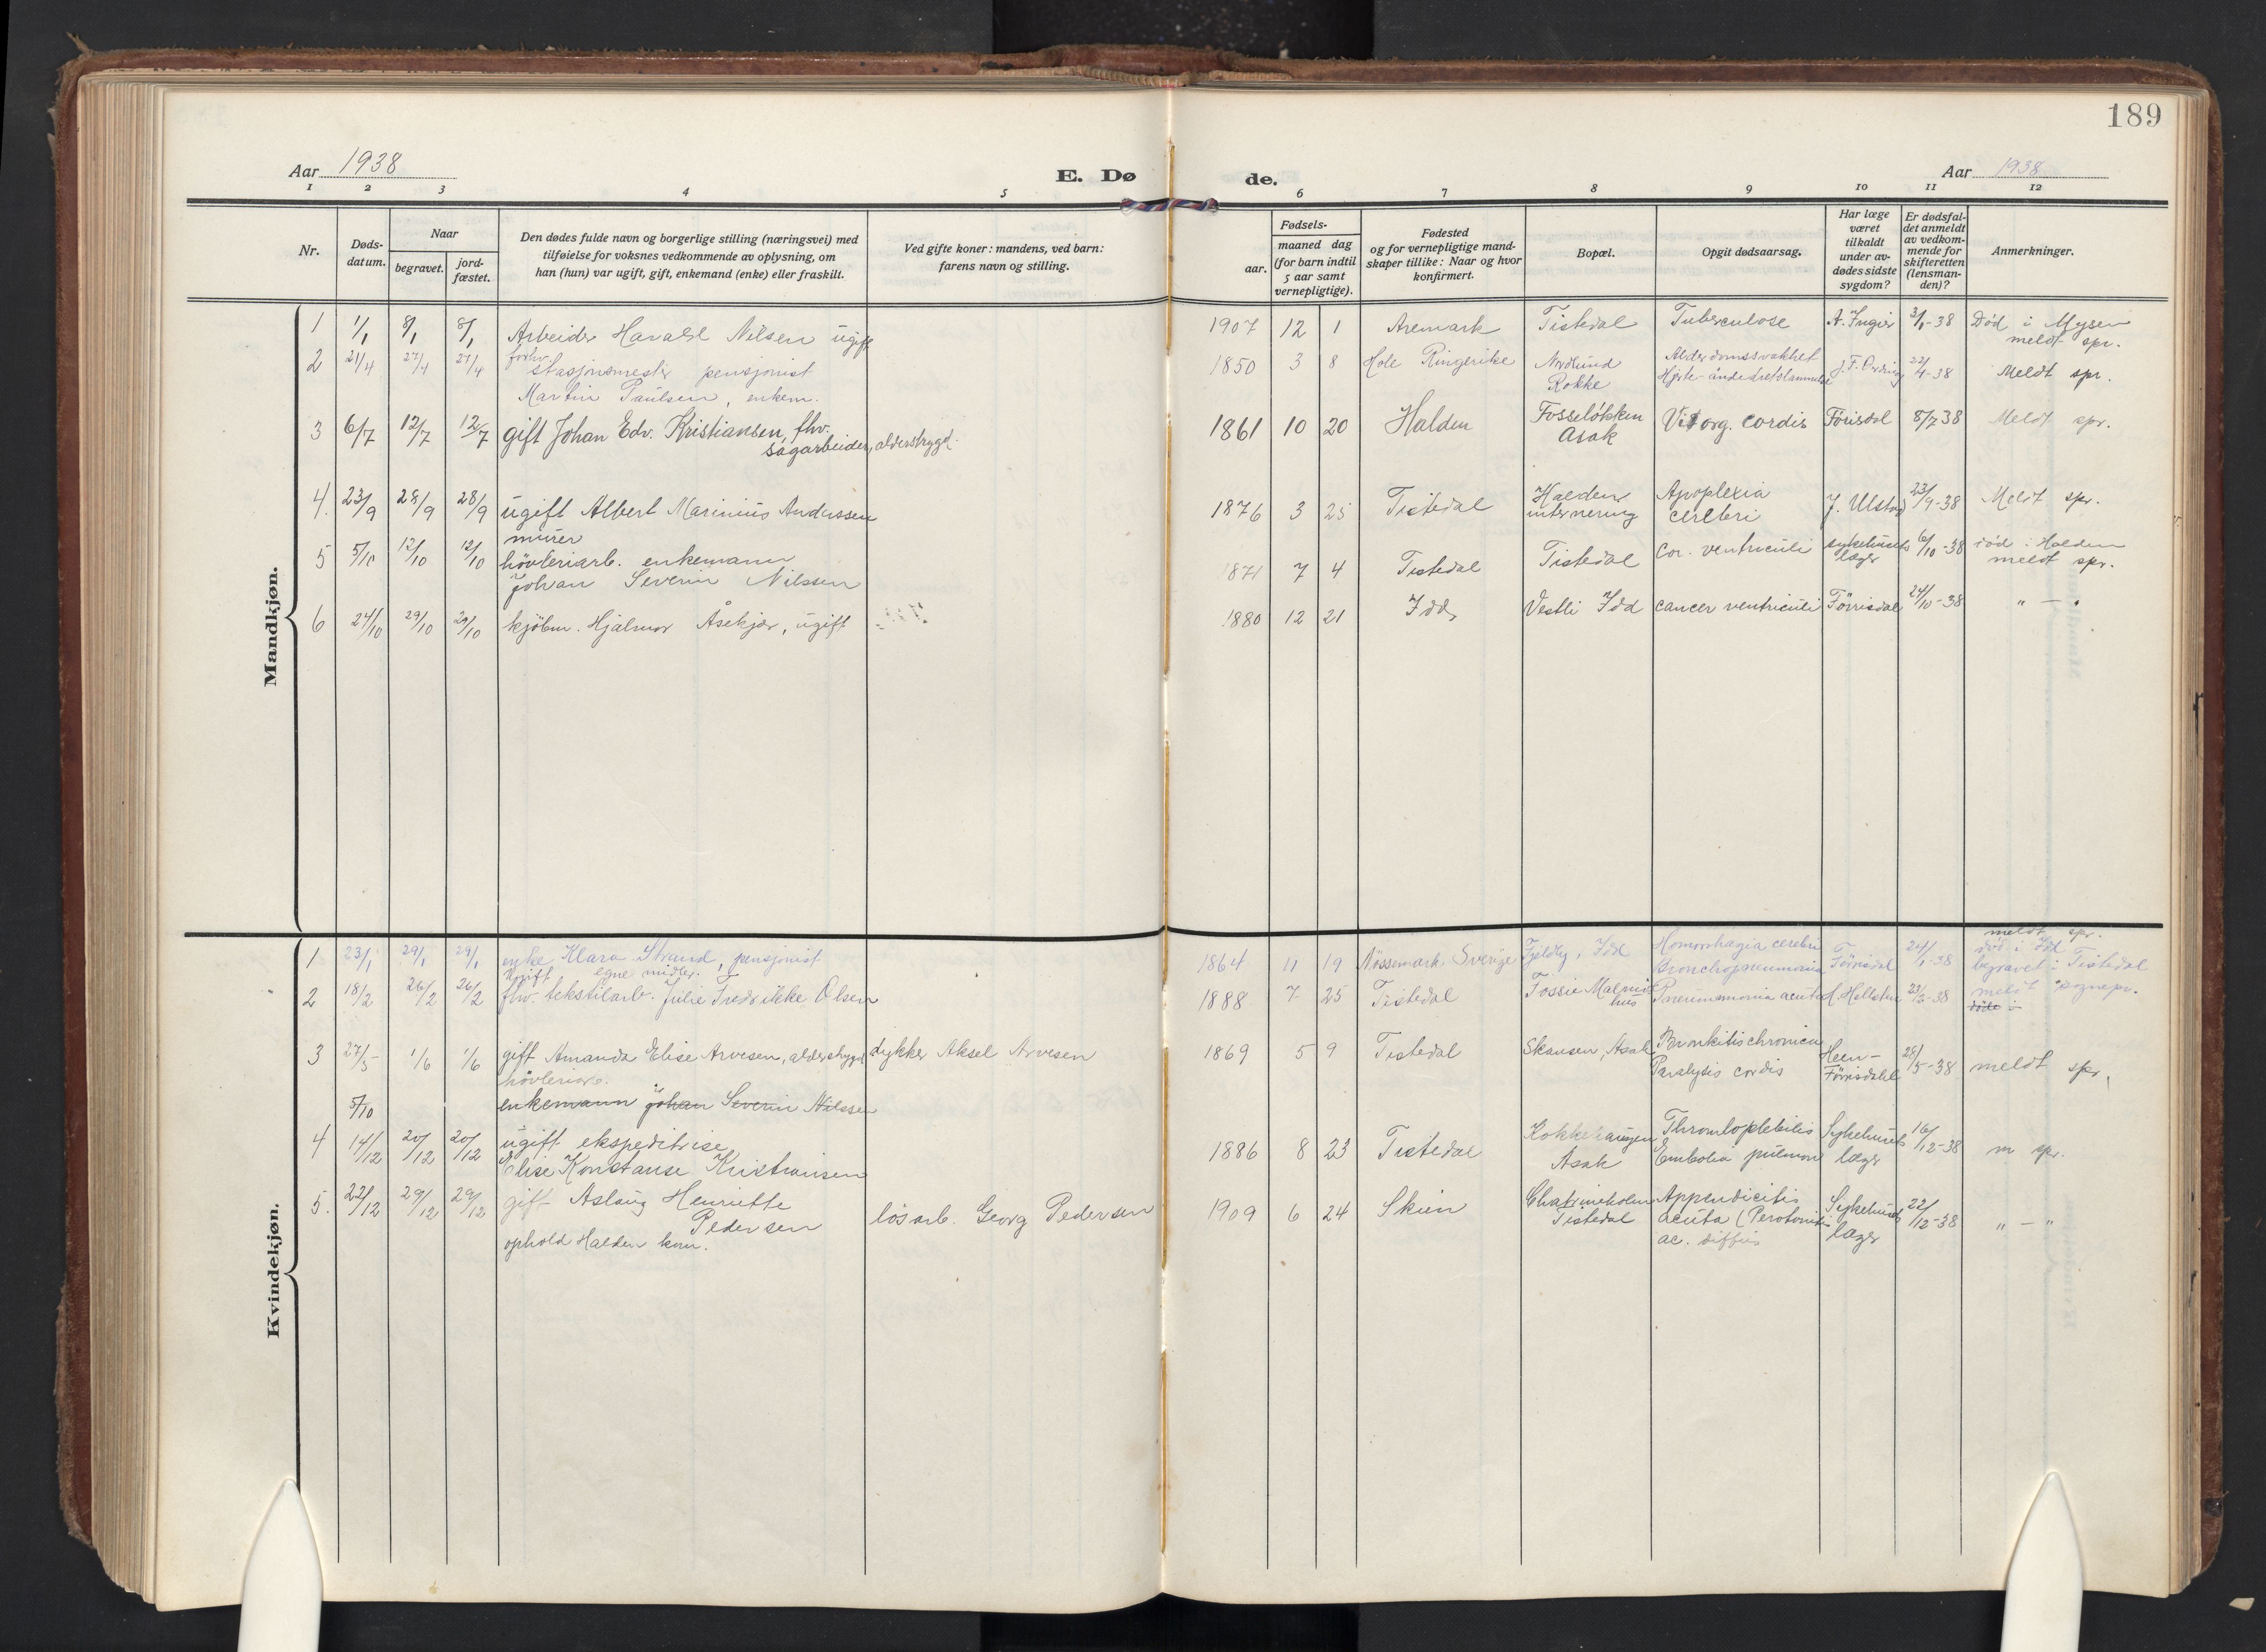 189
Aar 1938
E. Dø
de.
Aar 1938
1 2 3 4 5 6 7 8 9 10 11 12
Nr.
Døds-
datum.
Naar
begravet.
jord-
fæstet.
Den dødes fulde navn og borgerlige stilling (næringsvei) med
tilføielse for voksnes vedkommende av oplysning, om
han (hun) var ugift, gift, enkemand (enke) eller fraskilt.
Ved gifte koner: mandens, ved barn:
farens navn og stilling.
Fødsels-
aar.
maaned dag
(for barn indtil
5 aar samt
vernepligtige).
Fødested
og for vernepligtige mand-
skaper tillike: Naar og hvor
konfirmert.
Bopæl.
Opgit dødsaarsag.
Har læge
været
tilkaldt
under av-
dødes sidste
sygdom?
Er dødsfal-
det anmeldt
av vedkom-
mende for
skifteretten
(lensman-
den)?
Anmerkninger.
Mandkjøn.
1 1/1 8/1 8/1 Arbeider Harald Nilsen ugift 1907 12 1 Aremark Tistedal Tuberculose A. Ingier 3/1-38 Død i Mysen
meldt spr.
2 21/4 27/4 27/4 forhv. stasjonsmester pensjonist 1850 3 8 Hole Ringerike Nordlund Alderdomssvakhet 22/4-38 Meldt spr.
Martin Paulsen, enkem. Rokke
3 6/7 12/7 12/7 gift Johan Edv. Kristiansen, fhv. 1861 10 20 Halden Fosseløkken Vit. org. cordis Förisdal 8/7 38 Meldt spr.
sagarbeider, alderstrygd. Asak
4. 23/9 28/9 28/9 ugift Albert Marinius Anderssen 1876 3 25 Tistedal Haldens Apoplexia J. Ulstad 23/9-38 Meldt spr.
murer internering cerebri
5 5/10 12/10 12/10 hövleriarb. enkemann 1871 7 4 Tistedal Tistedal Cor. ventriculi sykehusets 6/10-38 död i Halden
Johan Severin Nilssen læger meldt spr.
6 24/10 29/10 29/10 kjöbm. Hjalmar Åsekjær, ugift 1880 12 21 Idd, Vestli Idd cancer ventriculi Förrisdal 24/10-38 " — "
Kvindekjøn.
1 23/1 29/1 29/1 enke Klara Strand, pensjonist 1864 11 19 Nössemark, Sverige Fjeldby, Idd Homorrhagia cerebri Förrisdal 24/1-38 meldt spr.
egne midler. Bronchopneumonia död i Idd
begravet i Tistedal
2 18/2 26/2 26/2 Ugift 1888 7 25 Tistedal Pneummonia acuta 23/2-38 meldt sognepr.
fhv. tekstilarb. Julie Fredrikke Olsen
3 27/5 1/6 1/6 gift Amanda Elise Arvesen, alderstrygd dykker Aksel Arvesen 1869 5 9 Tistedal Skansen, Asak Bronkitis chronica Heen- 28/5-38 meldt spr.
hövleriarb. Paralysis cordis Förrisdahl
5/10 enkemann Johan Severin Nilssen
4 14/12 20/12 20/12 ugift ekspeditrise 1886 8 23 Tistedal Thromboplebitis Sykehusets 16/12-38 m spr.
Elise Konstanse Kristiansen Asak Embolia pulmon læger
5. 22/12 29/12 29/12 gift Aslaug Henriette lösarb. Georg Pedersen 1909 6 24 Skien Chatrineholm Appendicitis Sykehusets 22/12-38 " — "
Pedersen Tistedal acuta (Perotonitis læger
ophold Halden kom. ac. diffus